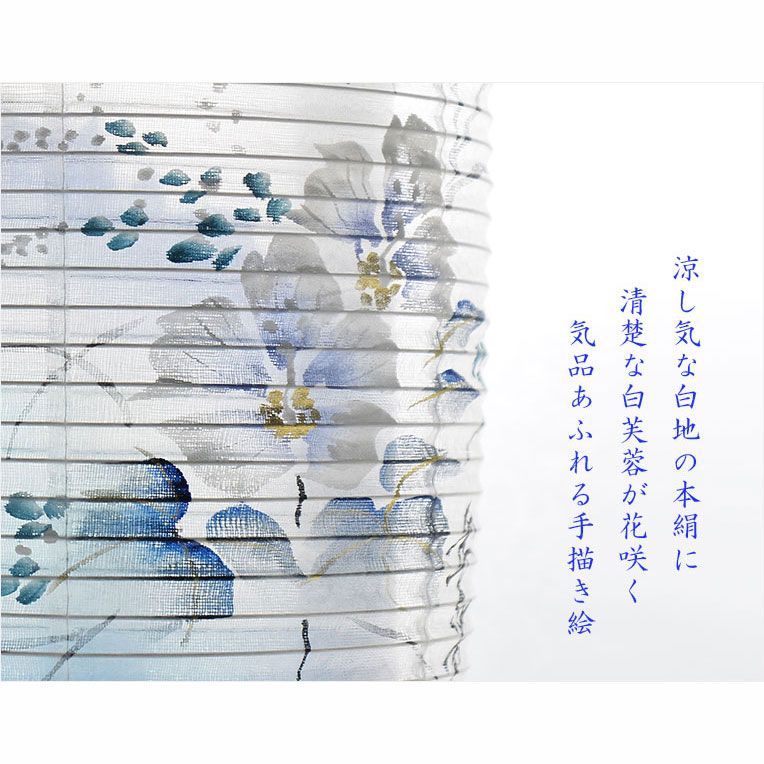 涼し気な白地の本絹に
清楚な白芙蓉が花咲く
気品あふれる手描き絵